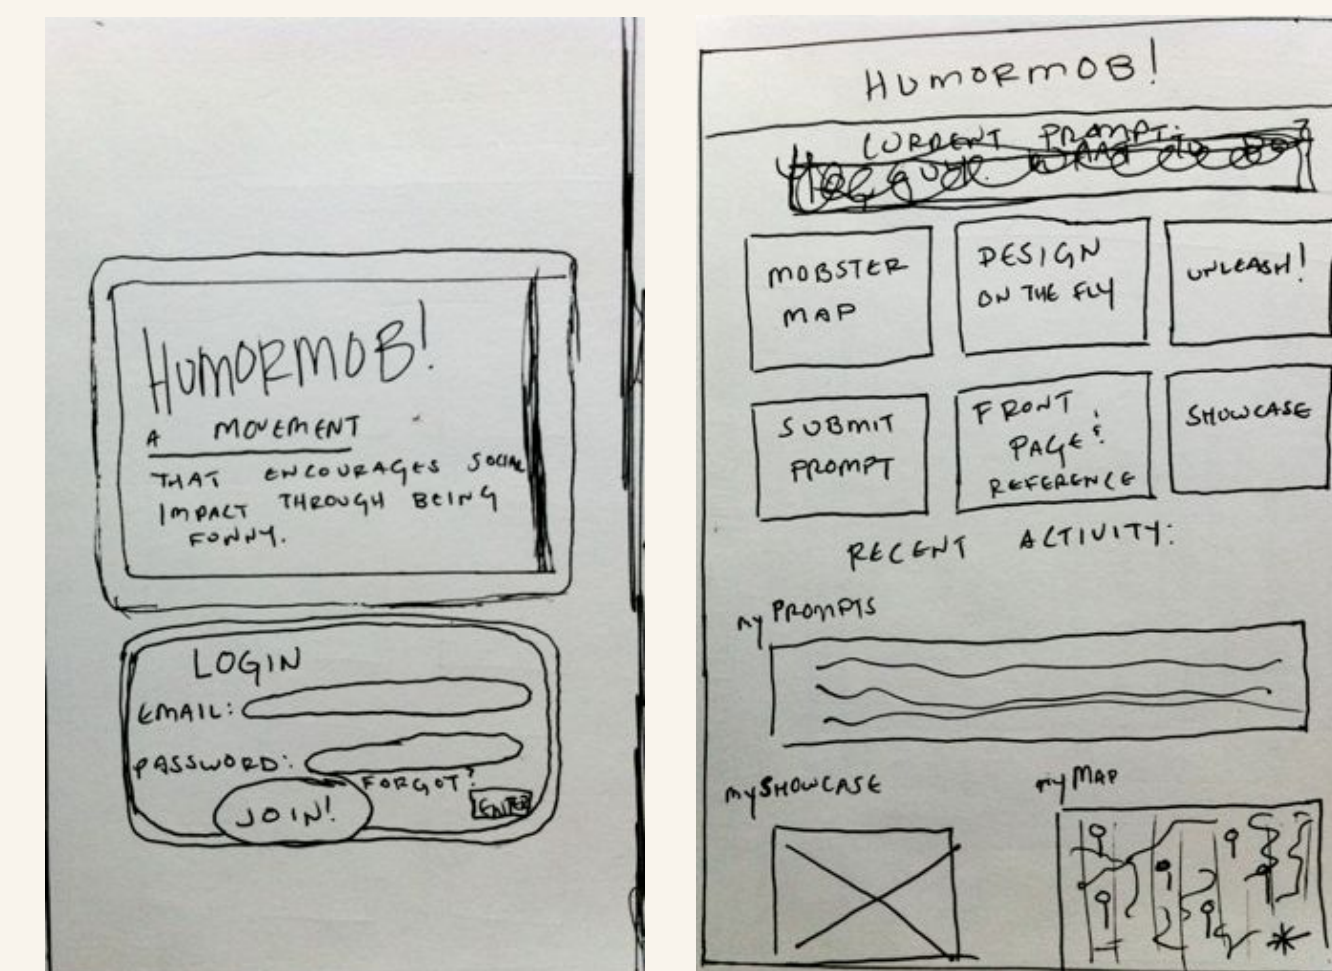 HUMORMOB!
A MOVEMENT
THAT ENCOURAGES SOCIAL
IMPACT THROUGH BEING
FUNNY.
LOGIN
EMAIL:
PASSWORD:
FORGOT?
JOIN!
ENTER
HUMORMOB!
CURRENT PROMPT:
MOBSTER
MAP
DESIGN
ON THE FLY
UNLEASH!
SUBMIT
PROMPT
FRONT
PAGE!
REFERENCE
SHOWCASE
RECENT ACTIVITY:
my PROMPTS
my SHOWCASE
my MAP